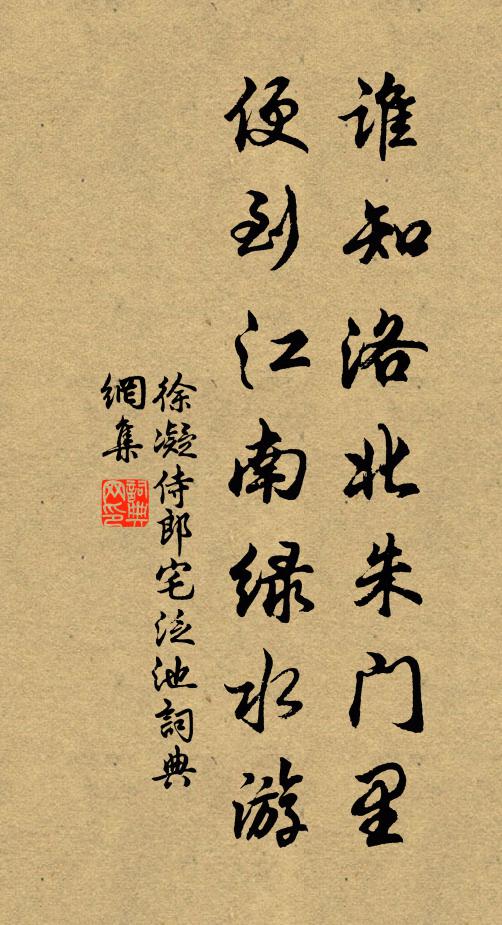 谁知洛北朱门里
便到江南绿水游
徐凝侍郎宅泛池詞典
網集
詞典网印